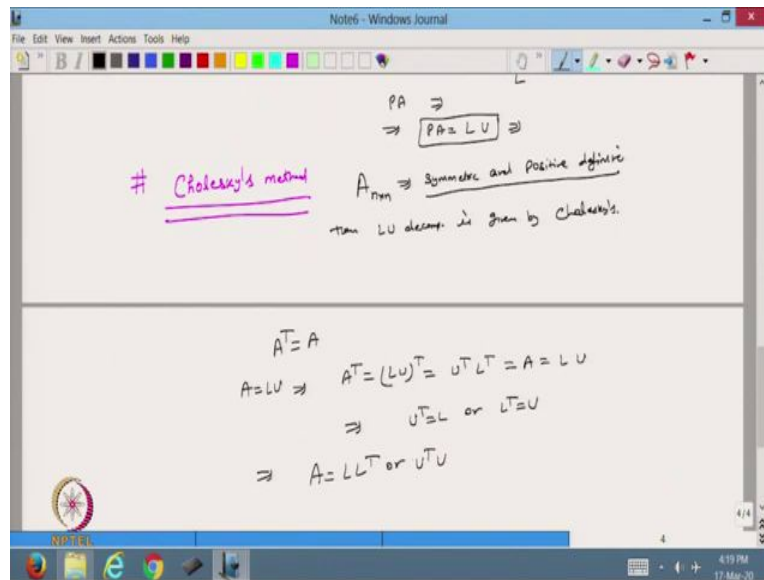 Note6 - Windows Journal
File Edit View Insert Actions Tools Help
B I
L
PA ⇒
⇒ PA = LU ⇒
# Cholesky's method A n×n ⇒ Symmetric and Positive definite
then LU decomp. is given by Cholesky's.
A^T = A
A = LU ⇒ A^T = (LU)^T = U^T L^T = A = LU
⇒ U^T = L or L^T = U
⇒ A = LL^T or U^T U
NPTEL
4/4
4
4:19 PM
17-Mar-20